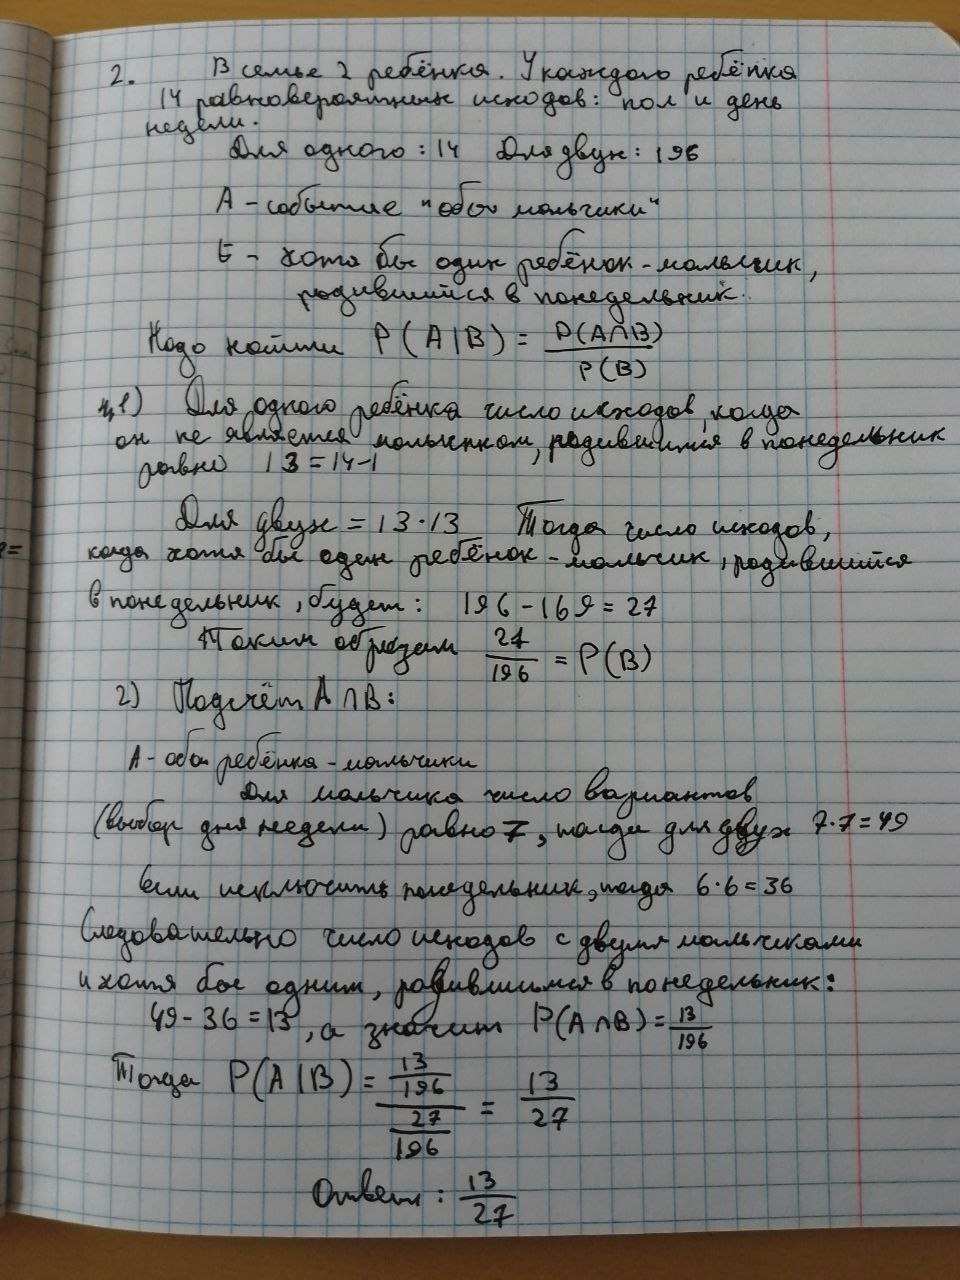 2. В семье 2 ребёнка. У каждого ребёнка
14 равновероятных исходов: пол и день
недели.
Для одного: 14 Для двух: 196
А - событие "оба мальчики"
Б - хотя бы один ребёнок - мальчик,
родившийся в понедельник.
Надо найти P(A|B) = P(A∩B) / P(B)
1) Для одного ребёнка число исходов, когда
он не является мальчиком, родившимся в понедельник
равно 13 = 14-1
Для двух = 13·13 Тогда число исходов,
когда хотя бы один ребёнок - мальчик, родившийся
в понедельник, будет: 196 - 169 = 27
Таким образом 27/196 = P(B)
2) Подсчёт A∩B:
А - оба ребёнка - мальчики
Для мальчика число вариантов
(выбор дня недели) равно 7, тогда для двух 7·7=49
Если исключить понедельник, тогда 6·6=36
Следовательно число исходов с двумя мальчиками
и хотя бы одним, родившимся в понедельник:
49 - 36 = 13, а значит P(A∩B) = 13/196
Тогда P(A|B) = 13/196 / 27/196 = 13/27
Ответ: 13/27